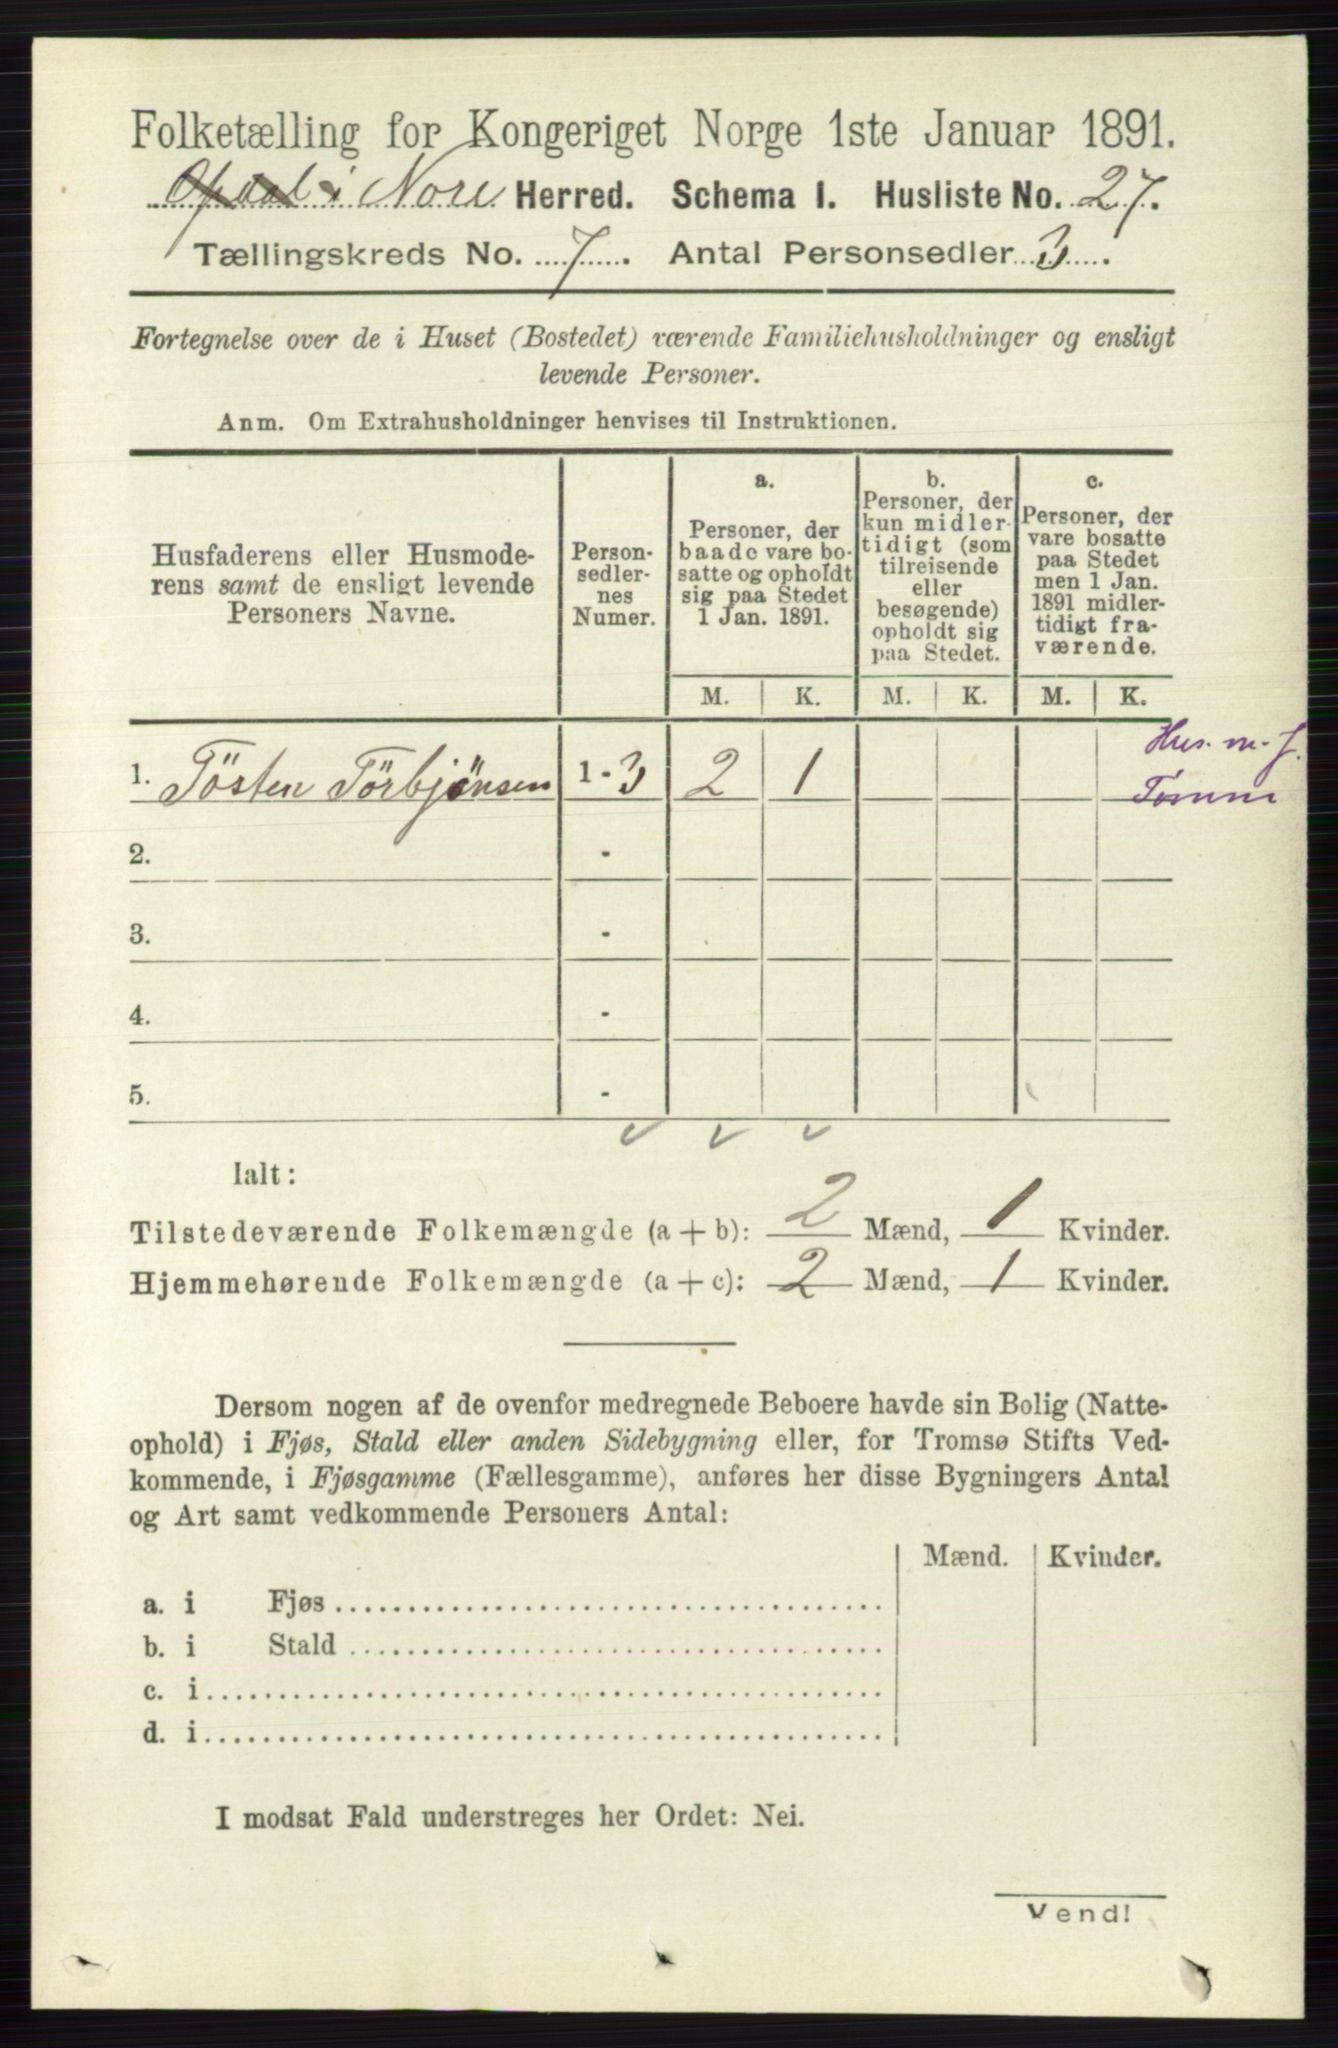 Folketælling for Kongeriget Norge 1ste Januar 1891.
Opdal i Nore Herred. Schema I. Husliste No. 27.
Tællingskreds No. 7. Antal Personsedler 3.
Fortegnelse over de i Huset (Bostedet) værende Familiehusholdninger og ensligt
levende Personer.
Anm. Om Extrahusholdninger henvises til Instruktionen.
Husfaderens eller Husmode-
rens samt de ensligt levende
Personers Navne.
Person-
sedler-
nes
Numer.
a.
Personer, der
baade vare bo-
satte og opholdt
sig paa Stedet
1 Jan. 1891.
b.
Personer, der
kun midler-
tidigt (som
tilreisende
eller
besøgende)
opholdt sig
paa Stedet.
c.
Personer, der
vare bosatte
paa Stedet
men 1 Jan.
1891 midler-
tidigt fra-
værende.
M. K. M. K. M. K.
Hus. m. J.
1. Tösten Törbjönsen 1 - 3 2 1
2. -
3. -
4. -
5. -
Ialt:
Tilstedeværende Folkemængde (a + b): 2 Mænd, 1 Kvinder.
Hjemmehørende Folkemængde (a + c): 2 Mænd, 1 Kvinder.
Dersom nogen af de ovenfor medregnede Beboere havde sin Bolig (Natte-
ophold) i Fjøs, Stald eller anden Sidebygning eller, for Tromsø Stifts Ved-
kommende, i Fjøsgamme (Fællesgamme), anføres her disse Bygningers Antal
og Art samt vedkommende Personers Antal:
Mænd. Kvinder.
a. i Fjøs
b. i Stald
c. i
d. i
I modsat Fald understreges her Ordet: Nei.
Vend!